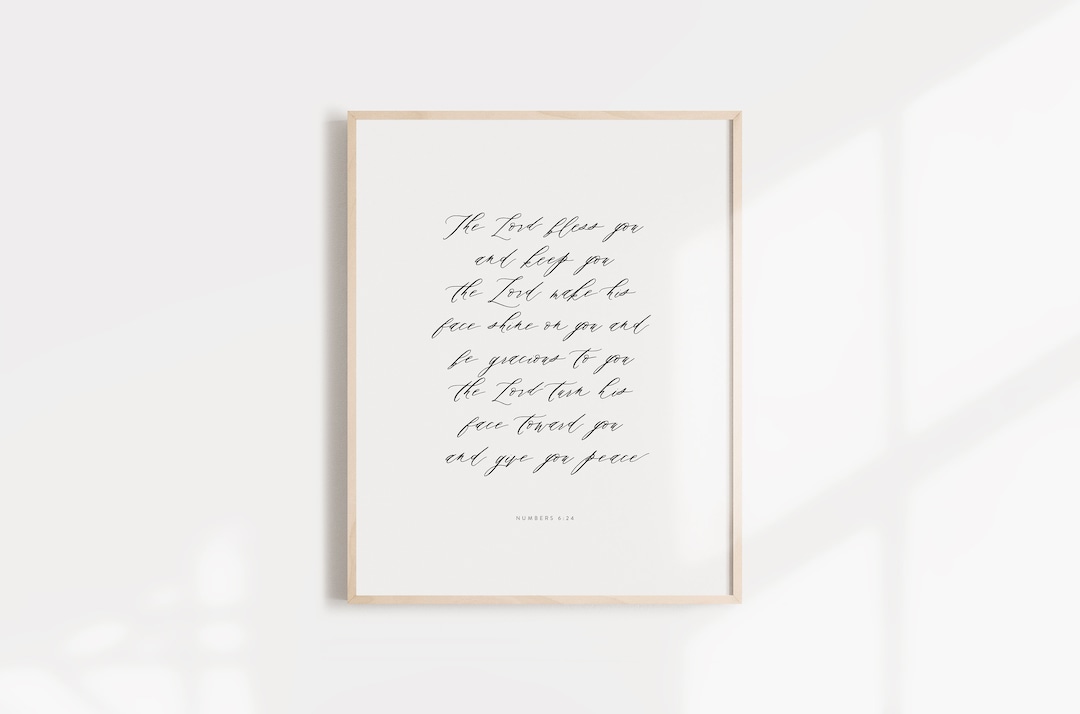 The Lord bless you
and keep you
the Lord make his
face shine on you and
be gracious to you
the Lord turn his
face toward you
and give you peace
NUMBERS 6:24